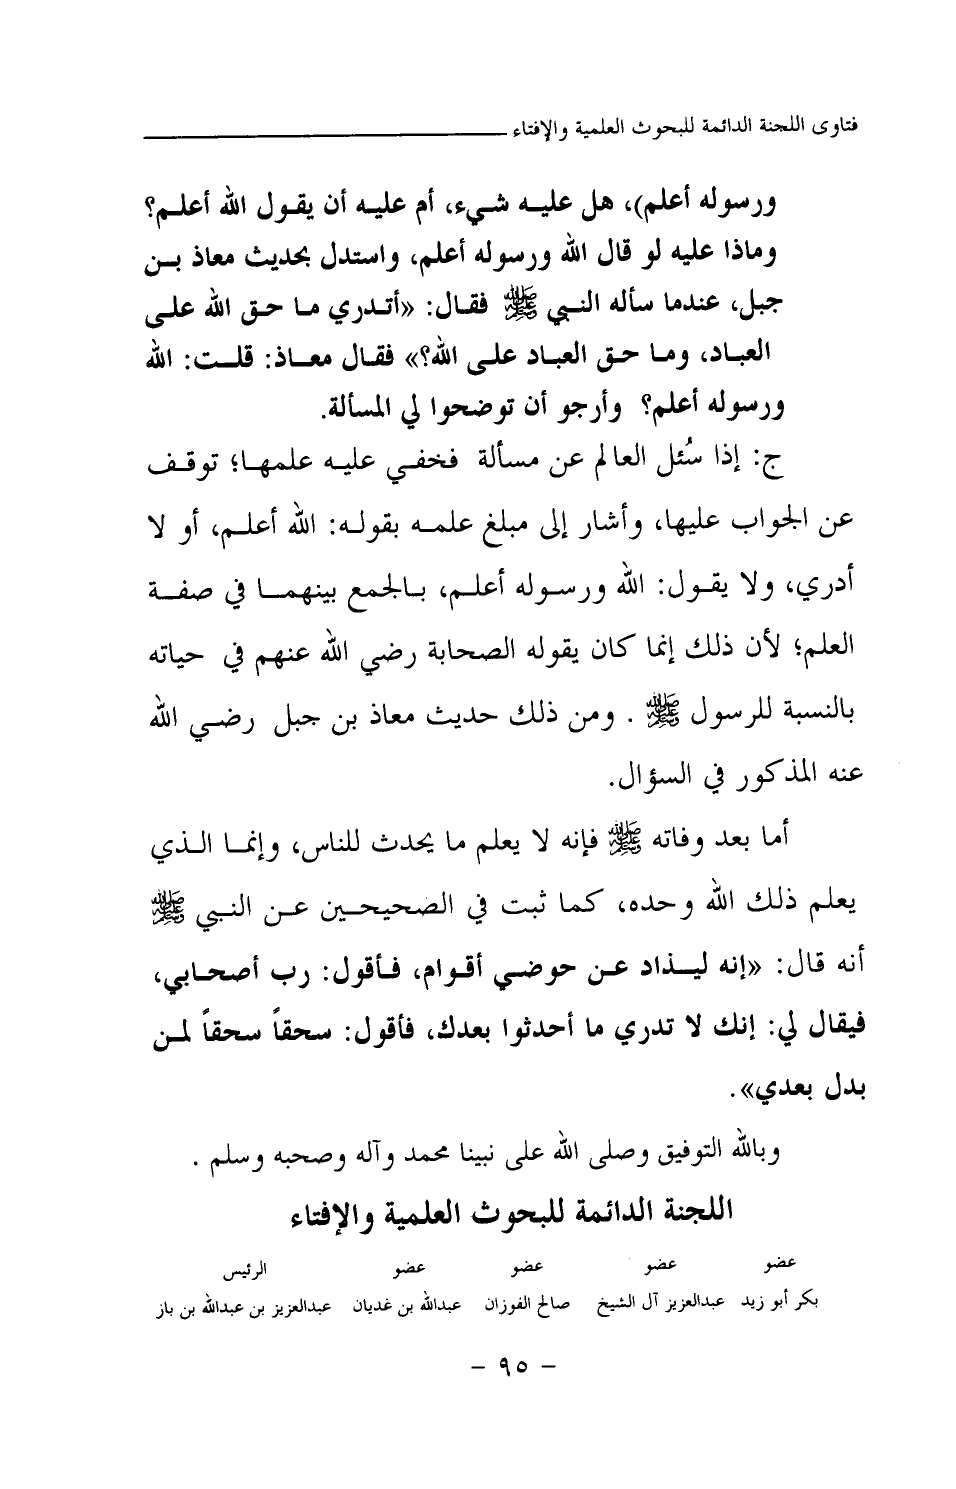 فتاوى اللجنة الدائمة للبحوث العلمية والإفتاء
ورسوله أعلم)، هل عليه شيء، أم عليه أن يقول الله أعلم؟
وماذا عليه لو قال الله ورسوله أعلم، واستدل بحديث معاذ بن
جبل، عندما سأله النبي ﷺ فقال: «أتدري ما حق الله على
العباد، وما حق العباد على الله؟» فقال معاذ: قلت: الله
ورسوله أعلم؟ وأرجو أن توضحوا لي المسألة.
ج: إذا سُئل العالم عن مسألة فخفي عليه علمها؛ توقف
عن الجواب عليها، وأشار إلى مبلغ علمه بقوله: الله أعلم، أو لا
أدري، ولا يقول: الله ورسوله أعلم، بالجمع بينهما في صفة
العلم؛ لأن ذلك إنما كان يقوله الصحابة رضي الله عنهم في حياته
بالنسبة للرسول ﷺ . ومن ذلك حديث معاذ بن جبل رضي الله
عنه المذكور في السؤال.
أما بعد وفاته ﷺ فإنه لا يعلم ما يحدث للناس، وإنما الذي
يعلم ذلك الله وحده، كما ثبت في الصحيحين عن النبي ﷺ
أنه قال: «إنه ليذاد عن حوضي أقوام، فأقول: رب أصحابي،
فيقال لي: إنك لا تدري ما أحدثوا بعدك، فأقول: سحقاً سحقاً لمن
بدل بعدي».
وبالله التوفيق وصلى الله على نبينا محمد وآله وصحبه وسلم .
اللجنة الدائمة للبحوث العلمية والإفتاء
عضو عضو عضو عضو الرئيس
بكر أبو زيد عبدالعزيز آل الشيخ صالح الفوزان عبدالله بن غديان عبدالعزيز بن عبدالله بن باز
- ٩٥ -